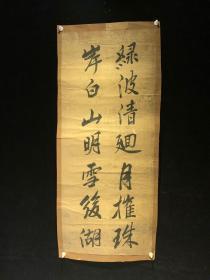 緑波清廻月摧珠
岸白山明雪後湖